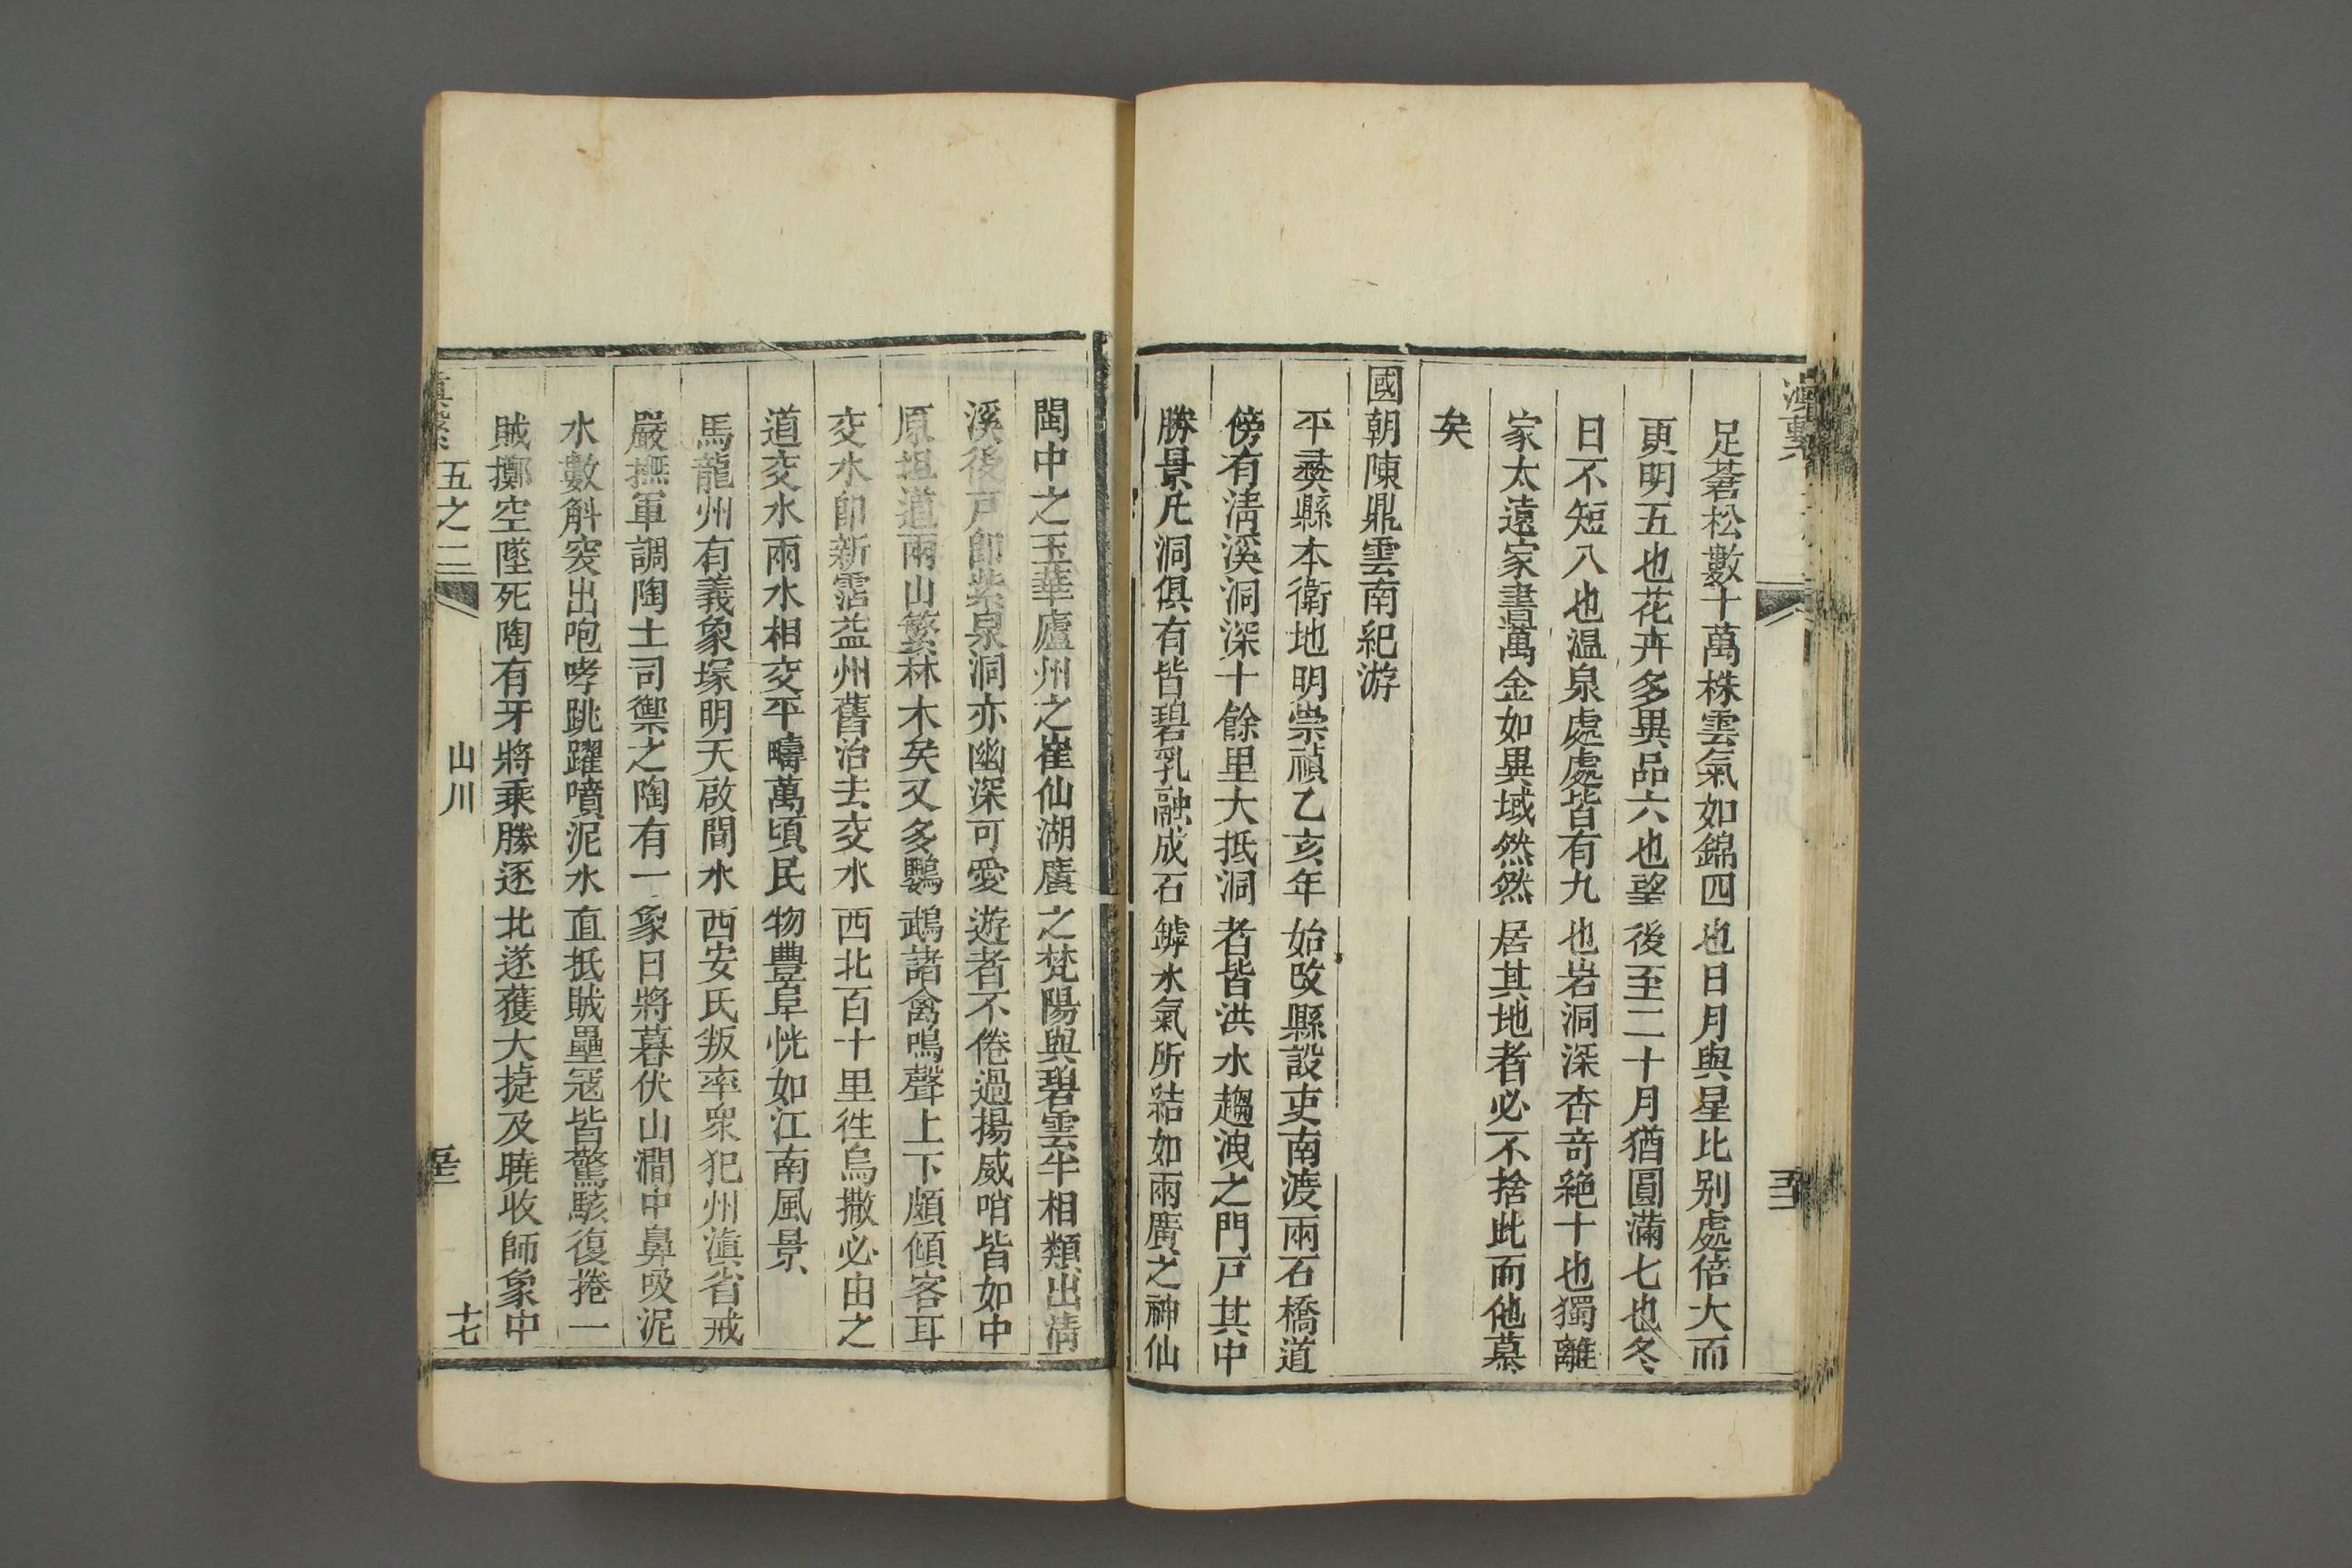 滇繫
足蒼松數十萬株雲氣如錦四也日月與星比别處倍大而
更明五也花卉多異品六也望後至二十月猶圓滿七也冬
日不短八也温泉處處皆有九也岩洞深杳竒絶十也獨離
家太遠家書萬金如異域然然居其地者必不捨此而他慕
矣
國朝陳鼎雲南紀游
平彞縣本衛地明崇禎乙亥年始改縣設吏南渡兩石橋道
傍有清溪洞深十餘里大抵洞者皆洪水趨洩之門戸其中
勝景凡洞俱有皆碧乳融成石鏬水氣所結如兩廣之神仙
閩中之玉華廬州之崔仙湖廣之梵陽與碧雲半相類出清
溪後戸卽紫泉洞亦幽深可愛遊者不倦過揚威哨皆如中
原坦道兩山繁林木矣又多鸚鵡諸禽鳴聲上下頗傾客耳
交水卽新霑益州舊治去交水西北百十里徃烏撒必由之
道交水兩水相交平疇萬頃民物豐阜恍如江南風景
馬龍州有義象塚明天啟間水西安氏叛率衆犯州滇省戒
嚴撫軍調陶土司禦之陶有一象日將暮伏山澗中鼻吸泥
水數斛突出咆哮跳躍噴泥水直抵賊壘冦皆驚駭復捲一
賊擲空墜死陶有牙將乘勝逐北遂獲大捷及曉收師象中
滇繫 五之二 山川 十七